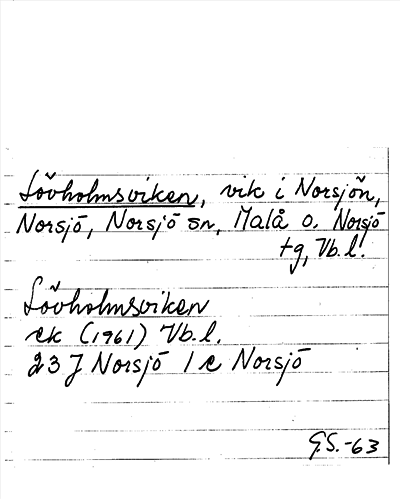 Lövholmsviken, vik i Norsjön,
Norsjö, Norsjö sn, Malå o. Norsjö
tg, Vb.l.
Lövholmsviken
ek (1961) Vb.l.
23 J Norsjö 1 e Norsjö
G.S.-63